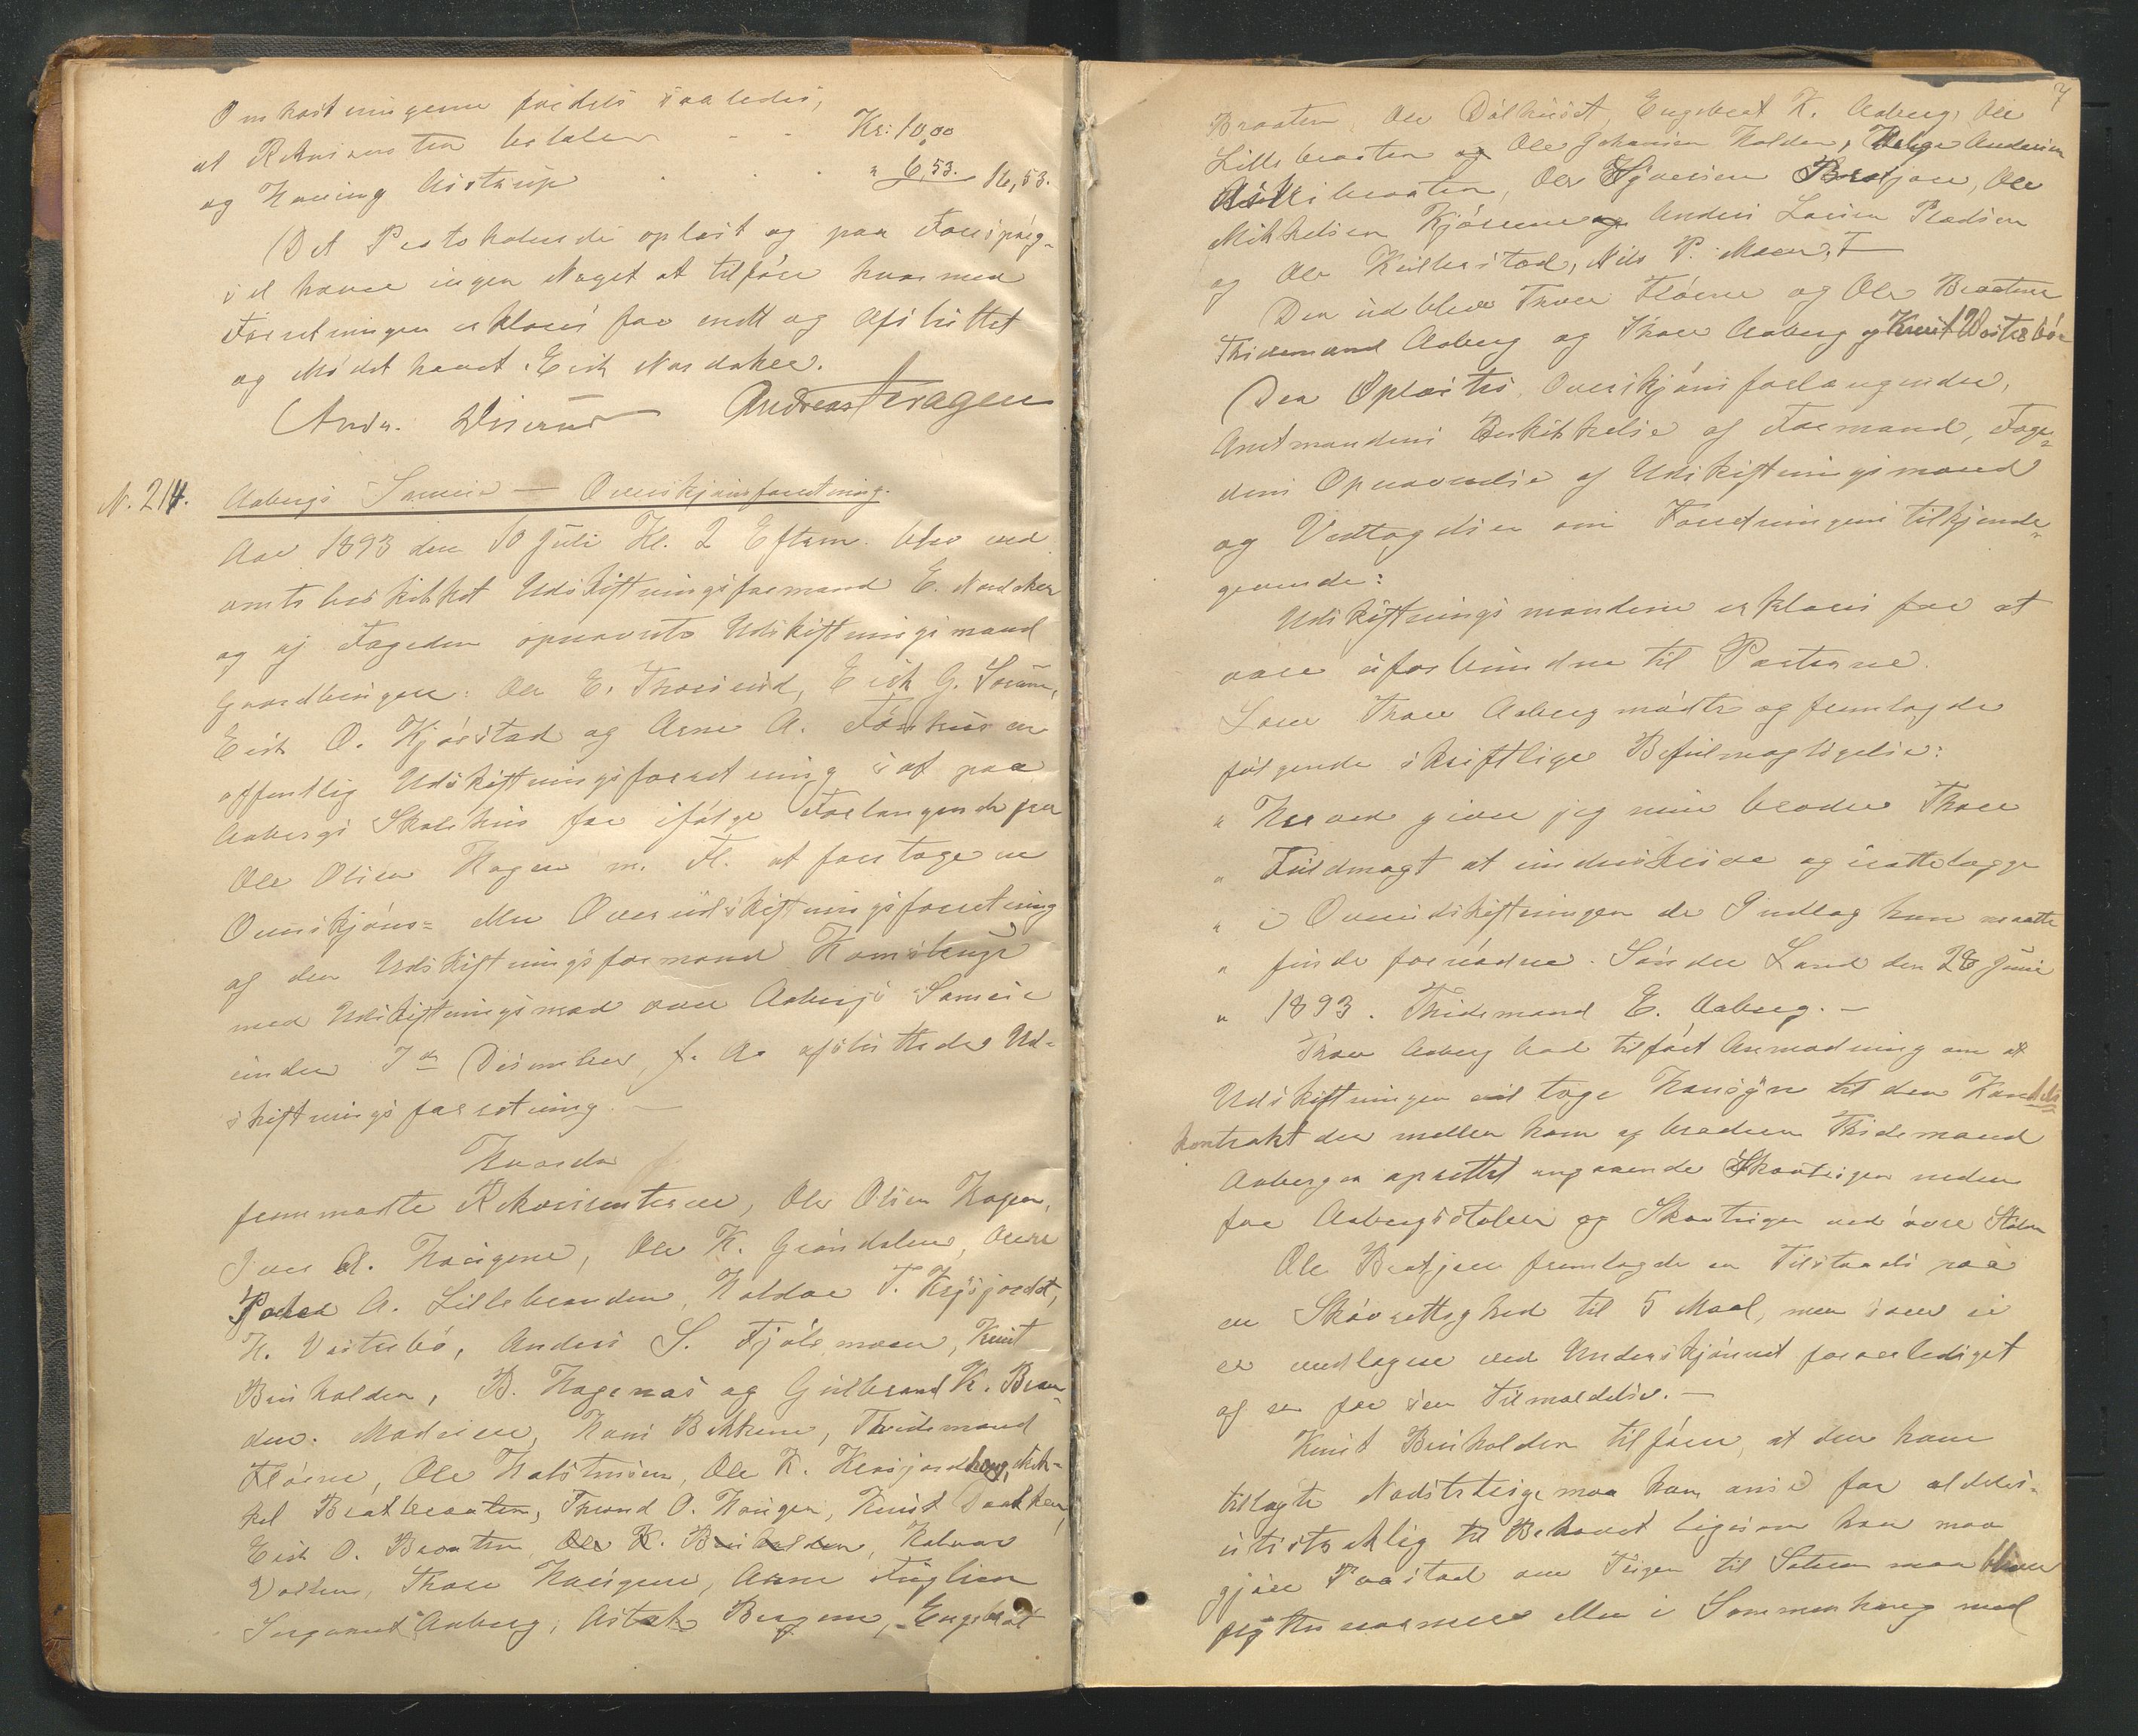 Omkostningerne fordeles saaledes,
at Rekvirenten betaler - - Kr: 10,00
og Hovirig Aistrup . . . " 6,53. 16,53.
Det Protokolerede oplæst og paa Forespørg-
sel havde ingen Noget at tilføre hvormed
Forretningen erklæres for endt og afsluttet
og Mødet hævet. Erik Nordaker.
Andr. Andreas Fragen
N. 214. Aabergs Sameie — Overskjønsforretning.
Aar 1893 den 10 Juli Kl. 2 Efterm. blev ved
amtsbeskikket Udskiftningsformand E. Nordaker
og af Fogeden opnævnte Udskiftningsmænd
Gaardbruger: Ole E. Thorsrud, Erik G. Sorum,
Erik O. Kjørstad og Arne A. Fønhus en
offentlig Udskiftningsforretning sat paa
Aabergs Skolehus for ifølge Forlangende fra
Ole Olsen Hagen m. Fl. at foretage en
Overskjøns- eller Overudskiftningsforretning
af den Udskiftningsformand Komshuge
med Udskiftningsmænd over Aabergs Sameie
under 7de Desember f. A. afsluttede Ud-
skiftningsforretning. —
Hvorda
fremmødte Rekvirenterne, Ole Olsen Hagen,
Iver A. Haugene, Ole K. Grøndalen,
Peder A. Lillebranden, Haldor T. Kjøsjordet,
K. Vesterbø, Anders S. Fjølemoen, Knut
Bruholden, B. Hagenæs og Gulbrand K. Bran-
den. Hans Bekkene, Thidemand
Fløene, Ole Halstensen, Ole K. Mik-
kel Bratbraaten, Thrond O. Haugen, Knut
Erik O. Braaten, Ole K. Bruholden, Halvor
Thore Haugene, Arne Fuglien
Aaberg, Aslak Bergene, Engebret
7
Braaten, Ole Dølhuset, Engebret K. Aaberg, Ole
Lillebraaten og Ole Johansen Holden, Helge Andersen
Ole Bratjære, Ole
Mikkelsen Kjøsene og Anders Larsen Pladsen
og Ole Nils P. Moen.
Der udeblev Thore Fløene og Ole Braatene
Thidemand Aaberg og Thore Aaberg og Knut Vesterbø
Der Oplæstes Overskjønsforlangender,
Amtmandens Beskikkelse af Formand, Foge-
dens Opnævnelse af Udskiftningsmænd
og Vedtagelsen om Forretningens tilkjende-
givende:
Udskiftningsmændene erklæres for at
være uforbundne til Parterne.
Lars Thore Aaberg mødte og fremlagde
følgende skriftlige Befuldmægtigelse:
" Herved giver jeg min broder Thore
" Fuldmagt at underskrive og irettelægge
" i Overudskiftningen de Indlæg han maatte
" finde fornødne. Søndre Land den 28 Juni
" 1893. Thidemand E. Aaberg. —
Thore Aaberg bad tilført Anmodning om at
Udskiftningen vil tage Hensyn til den Handels
kontrakt der mellem ham og broderen Thidemand
Aaberg er oprettet angaaende Skovteigen neden
for Aabergsstølen og Skovteigen ved øvre Stølen
Ole Bratjære fremlagde en Tilstaaelse paa
en Skovrettighed til 5 Maal, men som ei
er vedtagen ved Underskjønnet foranlediget
af en for sen Tilmeldelse. —
Knut Bruholden tilfører, at den ham
tillagte Nødsteteige maa han anse for aldeles
utilstrækkelig til Behovet ligesom han maa
gjøre Paastand om Teigen til Sæteren maa blive
nærmere eller i Sammenhæng med